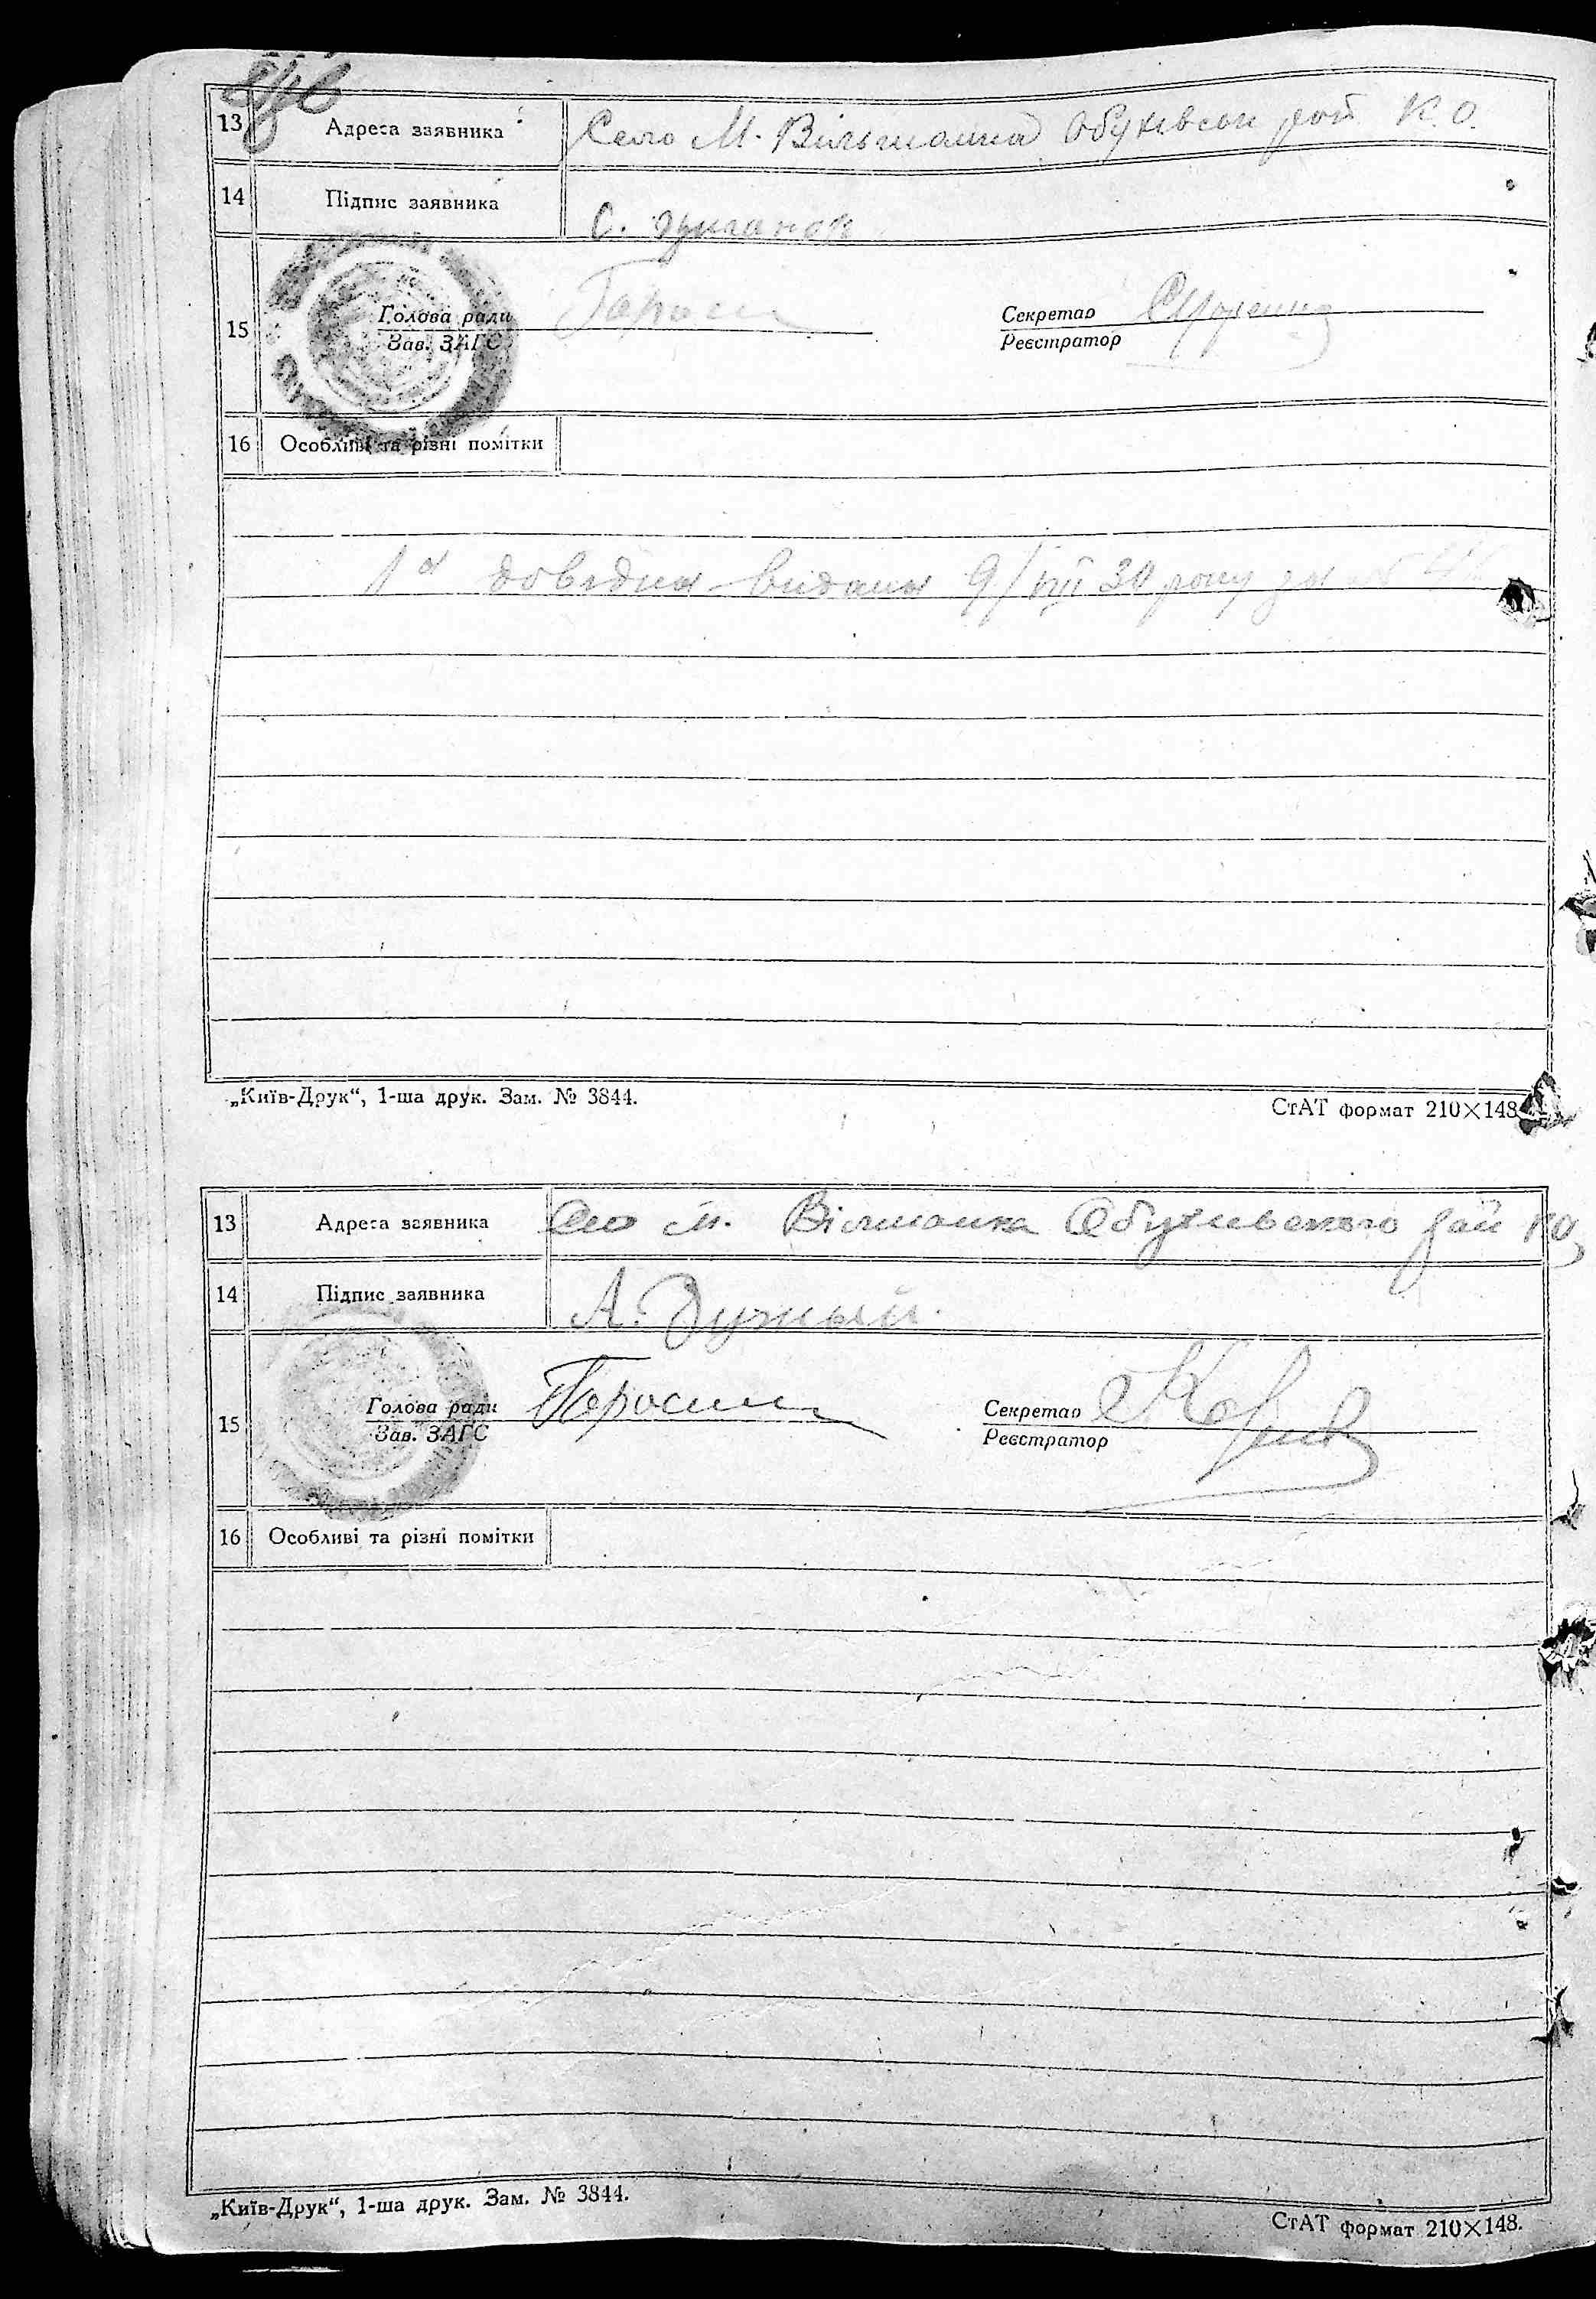 13 Адреса заявника Село М. Вільшанка Обухівськ рай К. О.
14 Підпис заявника С.
15 Голова ради Секретар
Зав. ЗАГС Реєстратор
16 Особливі та різні помітки
1а довідка видана 9/VIII 30 року за №
„Київ-Друк“, 1-ша друк. Зам. № 3844.
СтАТ формат 210×148
13 Адреса заявника Село М. Вільшанка Обухівського рай КО
14 Підпис заявника А.
15 Голова ради Секретар
Зав. ЗАГС Реєстратор
16 Особливі та різні помітки
„Київ-Друк“, 1-ша друк. Зам. № 3844.
СтАТ формат 210×148.